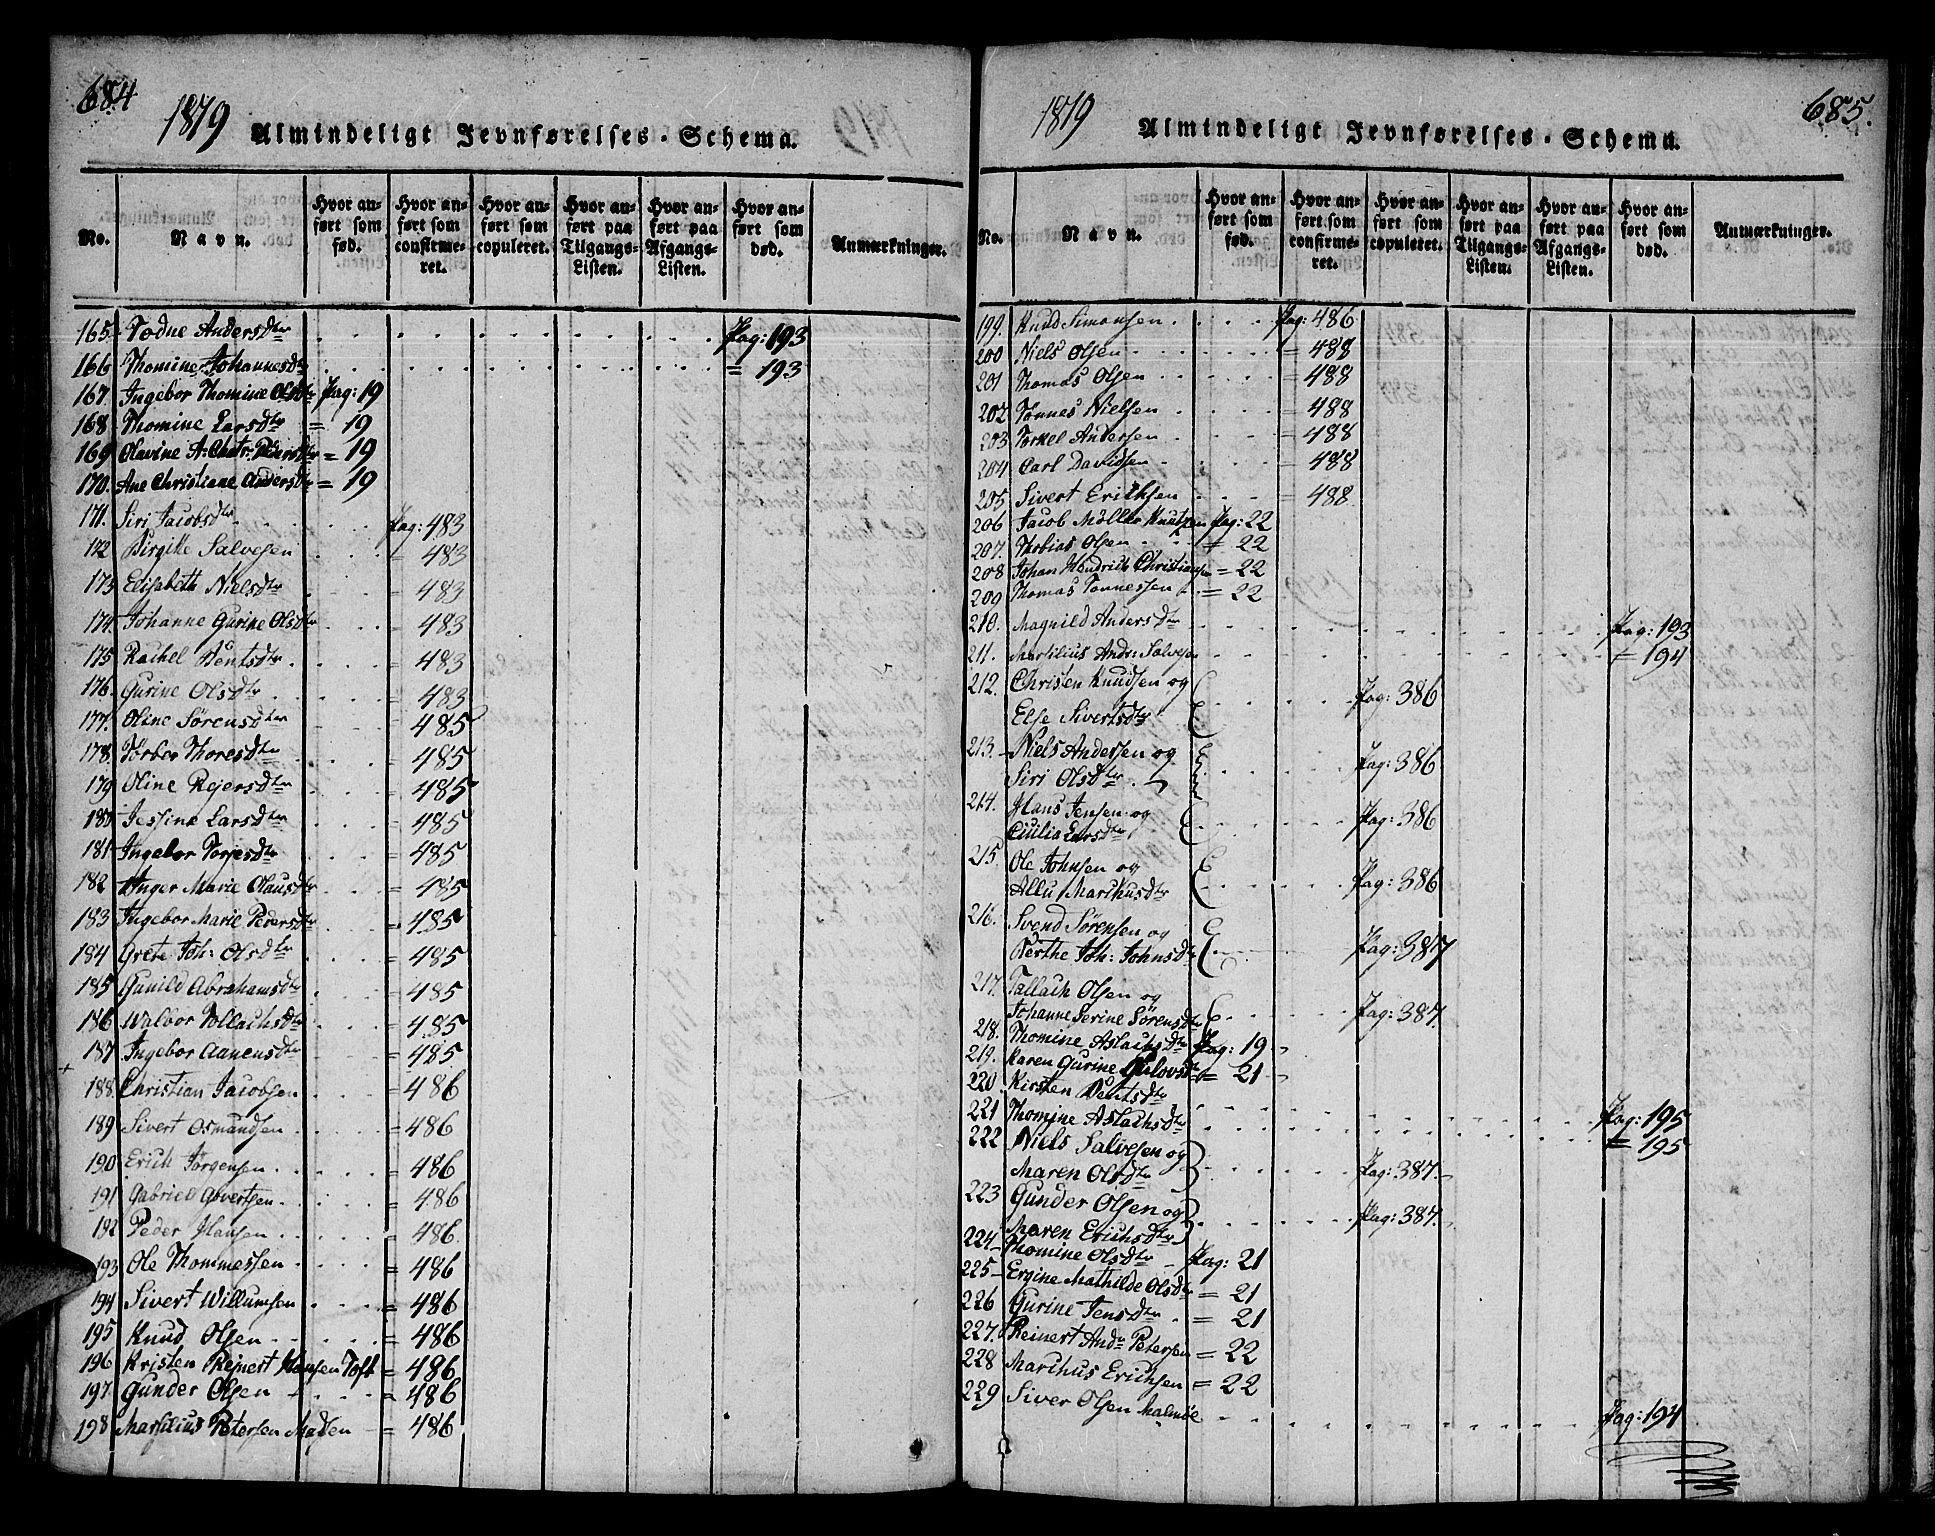 684
1819 Almindeligt Jevnførelses-Schema.
No.
Navn.
Hvor anført som fød.
Hvor anført som confirmeret.
Hvor anført som copuleret.
Hvor anført paa Tilgangs-Listen.
Hvor anført paa Afgangs-Listen.
Hvor anført som død.
Anmærkninger.
165. Todne Andersdtr Pag: 193
166 Thomine Johannesdtr = 193
167. Ingebor Thomine Olsdtr Pag: 19
168 Thomine Larsdtr = 19
169 Olavine A: Chatr: Peersdtr = 19
170. Ane Christiane Andersdtr = 19
171. Siri Jacobsdtr Pag: 483
172 Birgitte Salvesen = 483
173 Elisabeth Nielsdtr = 483
174 Johanne Gurine Olsdtr = 483
175 Rachel Bentsdtr = 483
176. Gurine Olsdtr = 483
177. Oline Sørensdtr = 485
178. Torbor Thoresdtr = 485
179 Oline Rejersdtr = 485
180 Jessine Larsdtr = 485
181 Ingebor Torjesdtr = 485
182 Anger Marie Olausdtr = 485
183 Ingebor Marie Pedersdtr = 485
184 Grete Joh: Olsdtr = 485
185 Gunild Abrahamsdtr = 485
186 Walbor Tollachsdtr = 485
187 Ingebor Aanensdtr = 485
188. Christian Jacobsen = 486
189 Sivert Osmundsen = 486
190 Erich Jørgensen = 486
191 Gabriel Govertsen = 486
192 Peder Hansen = 486
193 Ole Thommessen = 486
194 Sivert Willumsen = 486
195 Knud Olsen = 486
196 Kristen Reinert Hansen Toft = 486
197. Gunder Olsen = 486
198 Marselius Petersen Madsen = 486
685.
1819 Almindeligt Jevnførelses-Schema.
No.
Navn.
Hvor anført som fød.
Hvor anført som confirmeret.
Hvor anført som copuleret.
Hvor anført paa Tilgangs-Listen.
Hvor anført paa Afgangs-Listen.
Hvor anført som død.
Anmærkninger.
199. Knud Simonsen Pag: 486
200 Niels Olsen = 488
201 Thomas Olsen = 488
202 Tønnes Nielsen = 488
203 Torkel Andersen = 488
204 Carl Davidsen = 488
205 Sivert Erichsen = 488
206 Jacob Möller Knutzen Pag: 22
207. Thobias Olsen = 22
208 Johan Hendrich Christiansen = 22
209 Thomas Tonnessen = 22
210. Magnild Andersdtr Pag: 193
211. Marselius Andr: Salvesen = 194
212. Christen Knudsen og
Else Sivertsdtr Pag: 386
213 Niels Andersen og
Siri Olsdtr Pag: 386
214. Hans Jensen og
Ciulia Larsdtr Pag: 386
215 Ole Johnsen og
Allu Marchusdtr Pag: 386
216. Svend Sørensen og
Berthe Joh: Johnsdtr Pag: 387
217. Tallach Olsen og
Johanne Serine Sørensdtr Pag: 387.
218. Thomine Aslachsdtr Pag: 19
219. Karen Gurine Gulovsdtr = 21
220 Kirsten Bentsdtr Pag: 195
221 Thomine Aslachsdtr = 195
222 Niels Salvesen og
Maren Olsdtr Pag: 387.
223 Gunder Olsen og
Maren Erichsdtr Pag: 387.
224 Thomine Olsdtr Pag: 21
225 Ergine Mathilde Olsdtr = 21
226 Gurine Jensdtr = 21
227. Reinert Andr Petersen = 22
228 Marchus Erichsen = 22
229 Siver Olsen Malmöe Pag: 194